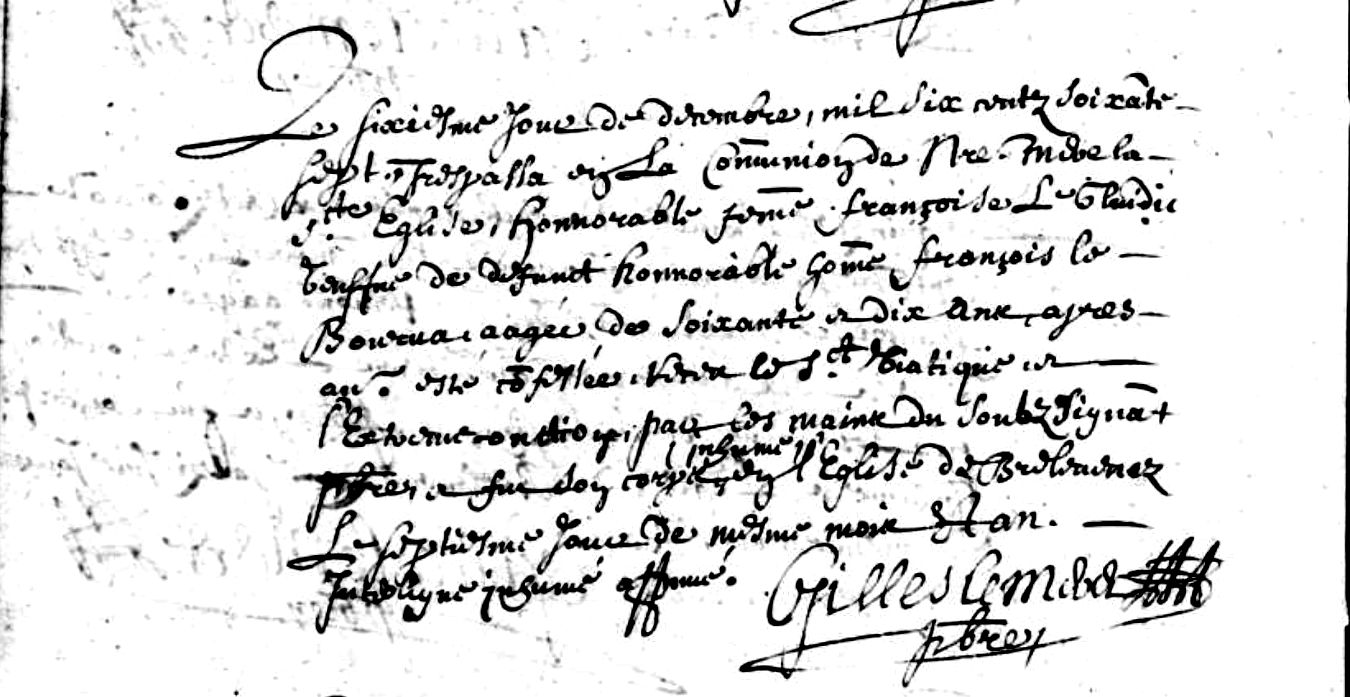 Le sixiesme jour de decembre, mil six centz soixāte
sept, trespassa en la Comūnion de Nre. Mere la
s.cte Eglise, honnorable fēme, françoise Le
veuffve de defunct honnorable hōme, françois le
aagée de soixante et dix ans, apres
av.r esté cōfessée, receu le s.ct Viatique et
l'Extreme onction, par les mains du soubzsignāt
pbre, et fut son corps, inhumé en l'Eglise de Brelevenez
Le septiesme jour de mesme mois & an.
Interligne inhumé affirmé. Gilles le
pbre,